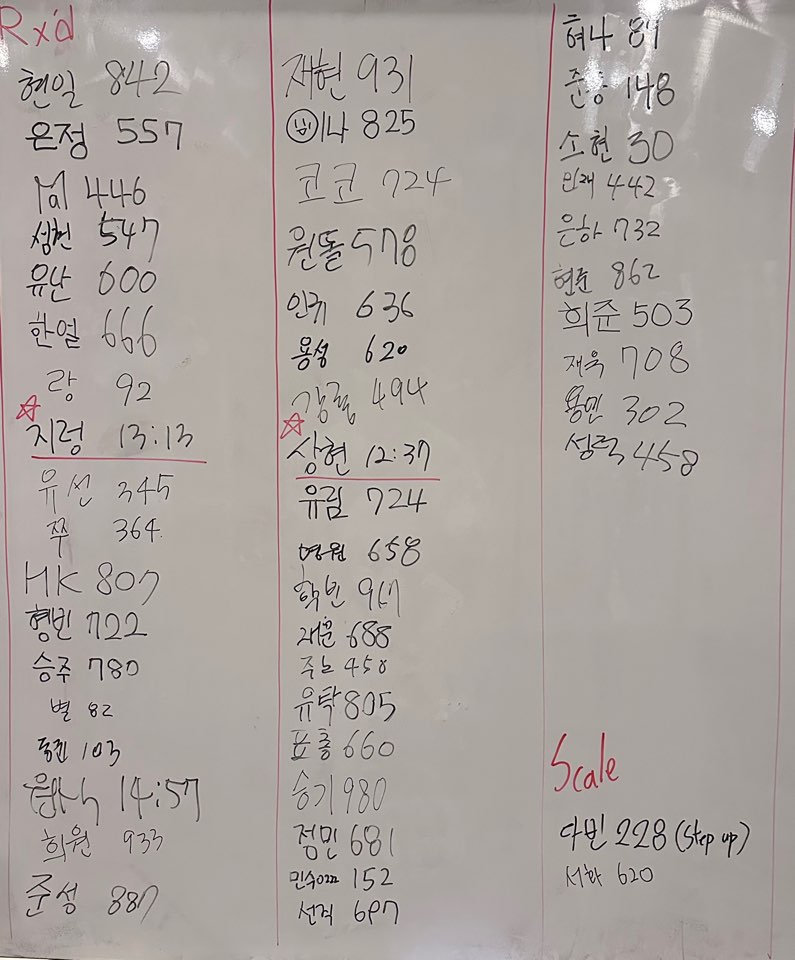 Rx'd
현일 842
은정 557
Mal 446
성현 547
유난 600
한열 666
랑 92
지렁 13:13
유선 345
쭈 364
HK 807
형빈 722
승주 780
별 82
103
14:57
희원 933
준성 887
재현 931
825
코코 724
원돌 578
인규 636
용성 620
494
상현 12:37
유림 724
영원 658
학빈
재윤 688
주노 458
유탁 805
표총 660
승기 980
정민 681
민수 152
선직 697
혀나 81
준상 148
소현 30
민재 442
은하 732
현준 862
희준 503
재욱 708
용민 302
성록 458
Scale
다빈 228 (Step up)
서하 620